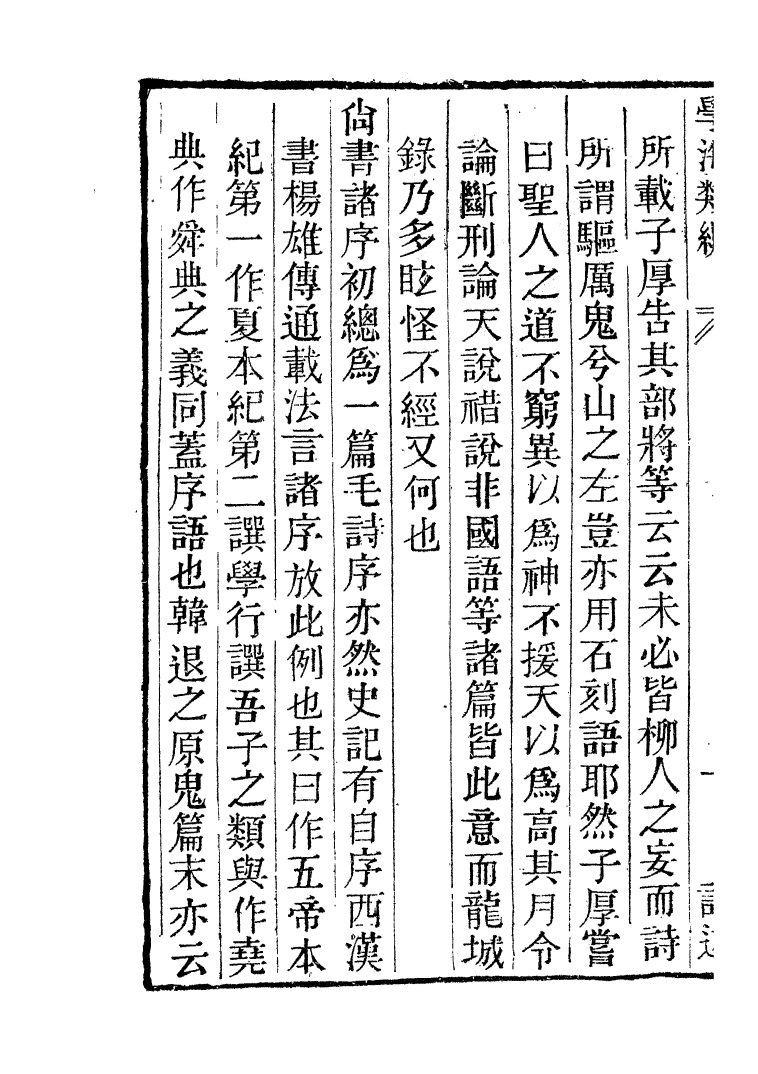 學海類編
所載子厚告其部將等云云未必皆柳人之妄而詩
所謂驅厲鬼兮山之左豈亦用石刻語耶然子厚嘗
曰聖人之道不窮異以爲神不援天以爲高其月令
論斷刑論天說䄍說非國語等諸篇皆此意而龍城
錄乃多眩怪不經又何也
尙書諸序初總爲一篇毛詩序亦然史記有自序西漢
書楊雄傳通載法言諸序放此例也其曰作五帝本
紀第一作夏本紀第二譔學行譔吾子之類與作堯
典作舜典之義同蓋序語也韓退之原鬼篇末亦云